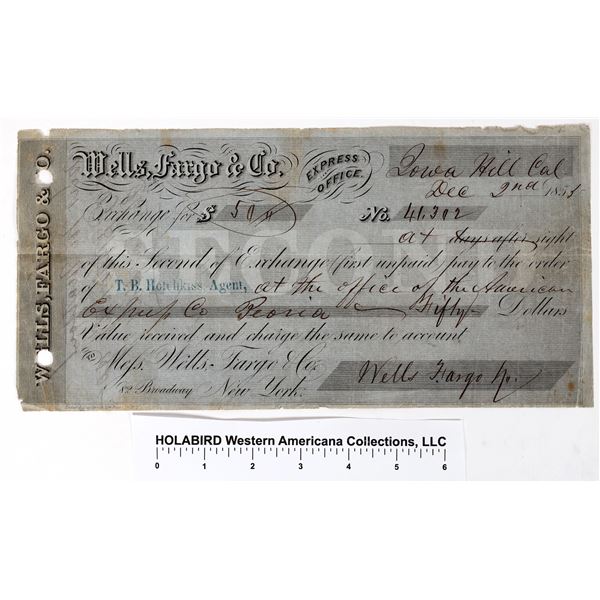 WELLS, FARGO & CO.
Wells, Fargo & Co. EXPRESS OFFICE.
Iowa Hill Cal
Dec 2nd 185
Exchange for $ 50 No. 41,302
SECOND
at days after sight
of this Second of Exchange (first unpaid) pay to the order
of T. B. Hotchkiss Agent, at the office of the American
Exprefs Co Peoria Fifty Dollars
Value received and charge the same to account
To Mess. Wells, Fargo & Co.
82 Broadway New York.
Wells Fargo &Co.
HOLABIRD Western Americana Collections, LLC
0 1 2 3 4 5 6